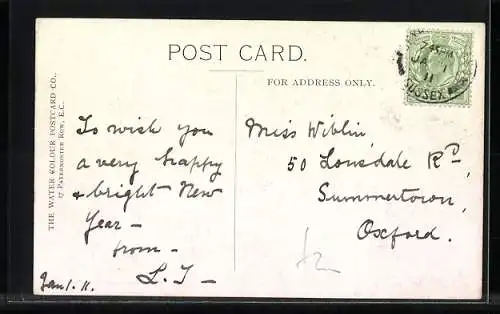 POST CARD.
FOR ADDRESS ONLY.
THE WATER COLOUR POSTCARD CO.,
17 PATERNOSTER ROW, E.C.
To wish you
a very happy
& bright New
Year —
from —
L. J —
Jan 1. 11.
Miss Wiblin,
50 Lonsdale Rd
Summertown,
Oxford.
11
SUSSEX